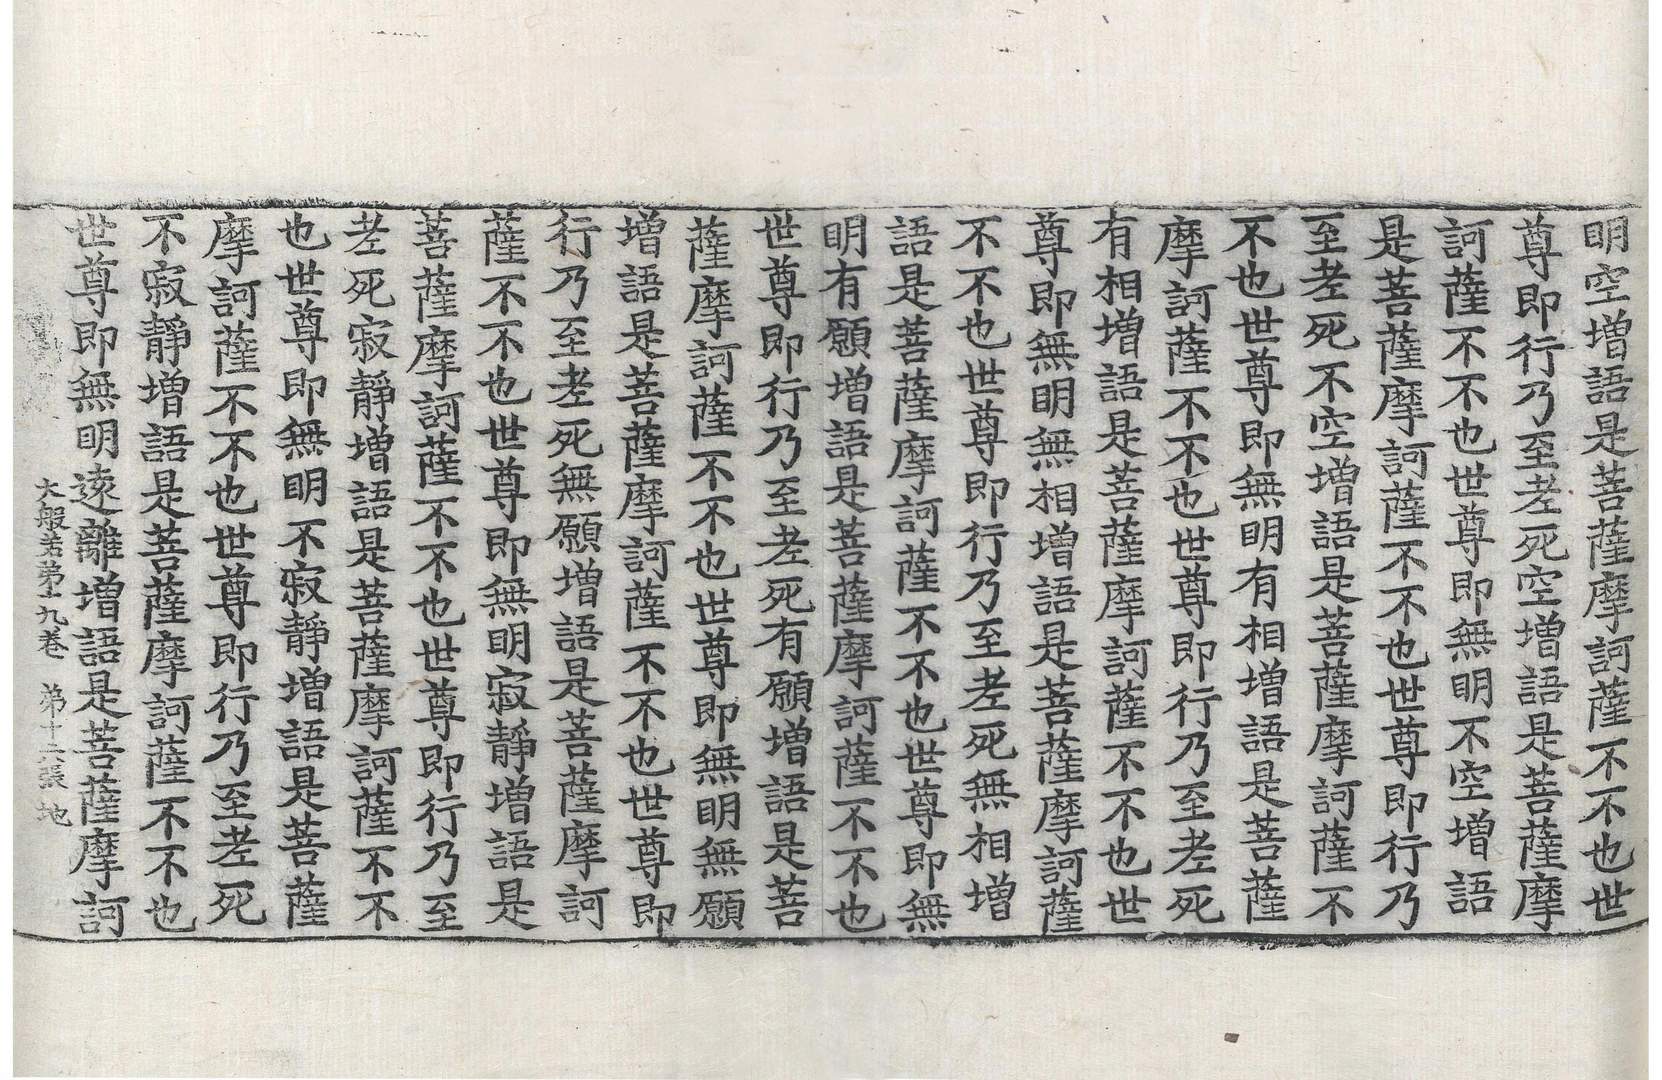 明空增語是菩薩摩訶薩不不也世
尊即行乃至老死空增語是菩薩摩
訶薩不不也世尊即無明不空增語
是菩薩摩訶薩不不也世尊即行乃
至老死不空增語是菩薩摩訶薩不
不也世尊即無明有相增語是菩薩
摩訶薩不不也世尊即行乃至老死
有相增語是菩薩摩訶薩不不也世
尊即無明無相增語是菩薩摩訶薩
不不也世尊即行乃至老死無相增
語是菩薩摩訶薩不不也世尊即無
明有願增語是菩薩摩訶薩不不也
世尊即行乃至老死有願增語是菩
薩摩訶薩不不也世尊即無明無願
增語是菩薩摩訶薩不不也世尊即
行乃至老死無願增語是菩薩摩訶
薩不不也世尊即無明寂靜增語是
菩薩摩訶薩不不也世尊即行乃至
老死寂靜增語是菩薩摩訶薩不不
也世尊即無明不寂靜增語是菩薩
摩訶薩不不也世尊即行乃至老死
不寂靜增語是菩薩摩訶薩不不也
世尊即無明遠離增語是菩薩摩訶
大般若第十九卷 第十六張 地